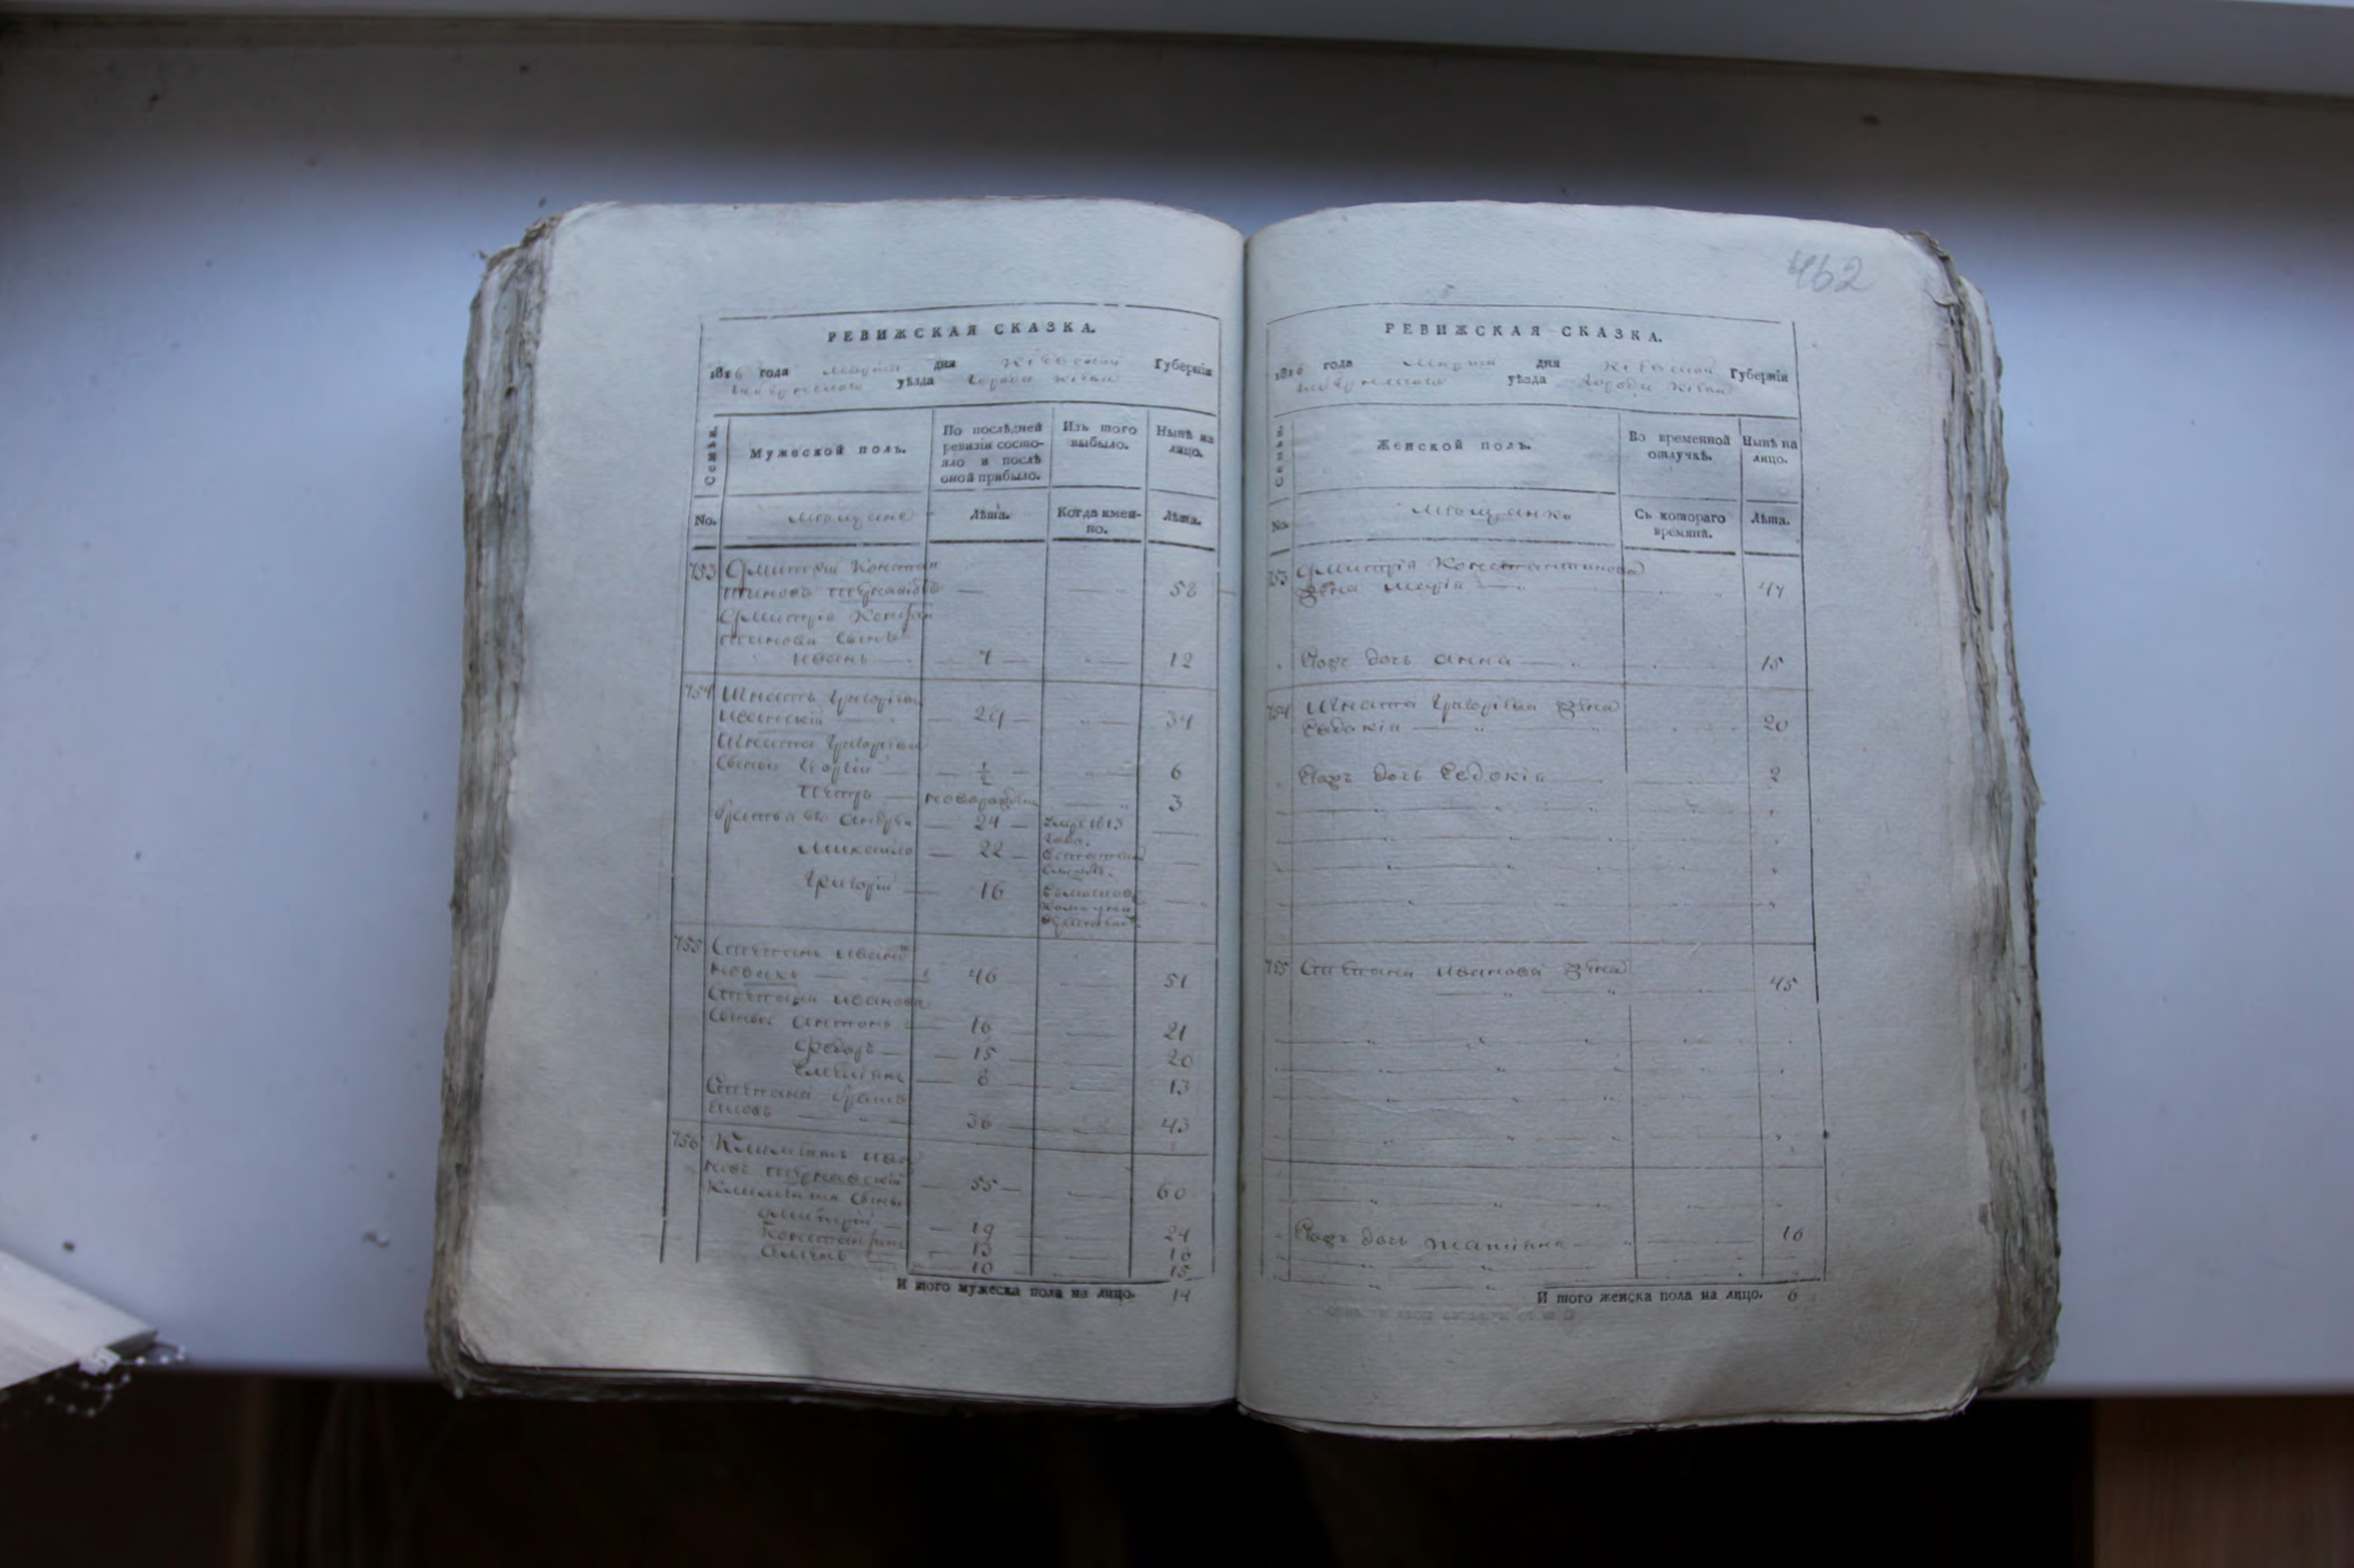 РЕВИЖСКАЯ СКАЗКА.
1816 года марта дня Кіевской Губерніи
уѣзда города Кіева
Семьи.
Мужеской полъ.
По послѣдней ревизіи состояло и послѣ оной прибыло.
Изъ того выбыло.
Нынѣ на лицо.
No.
мѣщане
Лѣта.
Когда имен-но.
Лѣта.
753 Дмитрій Констан
тиновъ 58
Дмитрія Конста
тинова сынъ
Иванъ 7 12
754 Игнатъ Григоріевъ
29 34
Игната Григоріева
сыновья Георгій 1/2 6
Петръ новорожден 3
братья его Андрей 24 1813
года.
Михайло 22
Григорій 16
755 Степанъ Иванов
Новакъ 46 51
Степана Иванова
сыновья Антонъ 16 21
Федоръ 15 20
Емеліянъ 8 13
Степана братъ
Яковъ 38 43
756 Климентій Ива
новъ 55 60
Климентія сыны
Дмитрій 19 24
Константинъ 13 18
10 15
И того мужеска пола на лицо. 14
462
РЕВИЖСКАЯ СКАЗКА.
1816 года марта дня Кіевской Губерніи
уѣзда города Кіева
Семьи.
Женской полъ.
Во временной отлучкѣ.
Нынѣ на лицо.
No.
мѣщанки
Съ котораго времяни.
Лѣта.
753 Дмитрія Константинова
жена Марія 44
Ихъ дочь Анна 15
754 Игната Григоріева жена
Евдокія 20
Ихъ дочь Евдокія 2
755 Степана Иванова жена
45
Ихъ дочь Татіянна 16
И того женска пола на лицо. 6